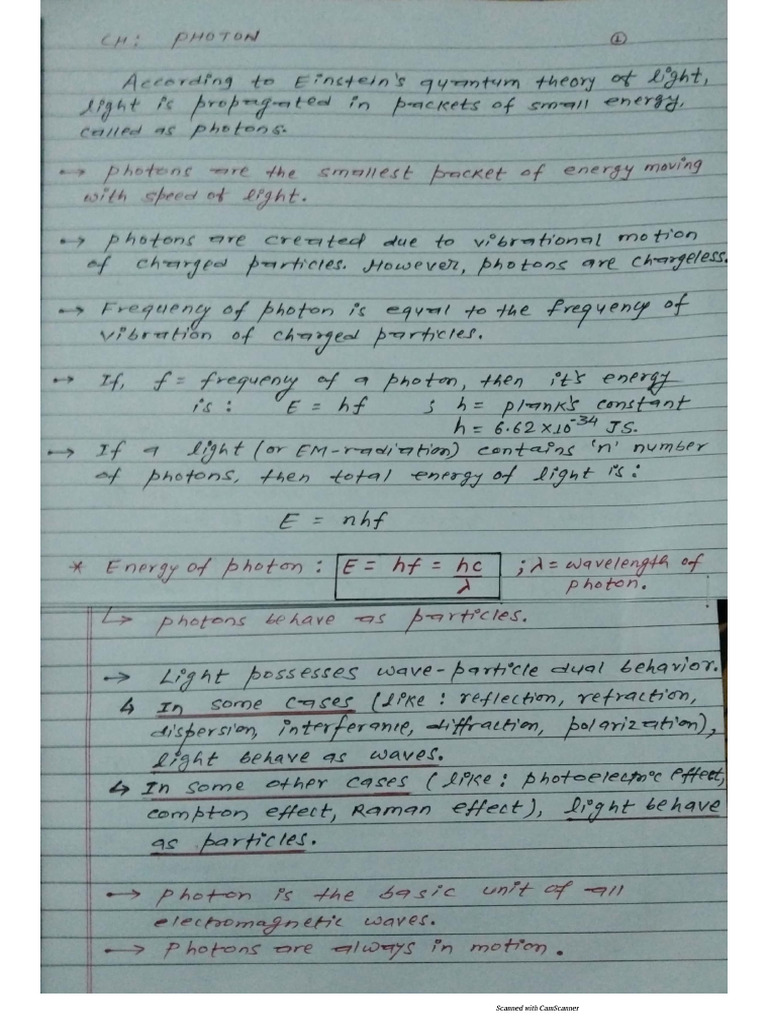 CH: PHOTON ①
According to Einstein's quantum theory of light,
light is propagated in packets of small energy,
called as photons.
→ photons are the smallest packet of energy moving
with speed of light.
→ photons are created due to vibrational motion
of charged particles. However, photons are chargeless.
→ Frequency of photon is equal to the frequency of
vibration of charged particles.
→ If, f = frequency of a photon, then it's energy
is: E = hf ; h = plank's constant
h = 6.62 × 10⁻³⁴ JS.
→ If a light (or EM-radiation) contains 'n' number
of photons, then total energy of light is:
E = nhf
* Energy of photon: E = hf = hc/λ ; λ = wavelength of
photon.
↳ photons behave as particles.
→ Light possesses wave-particle dual behavior.
↳ In some cases (like: reflection, refraction,
dispersion, interferance, diffraction, polarization),
light behave as waves.
↳ In some other cases (like: photoelectric effect,
compton effect, Raman effect), light behave
as particles.
→ photon is the basic unit of all
electromagnetic waves.
→ Photons are always in motion.
Scanned with CamScanner